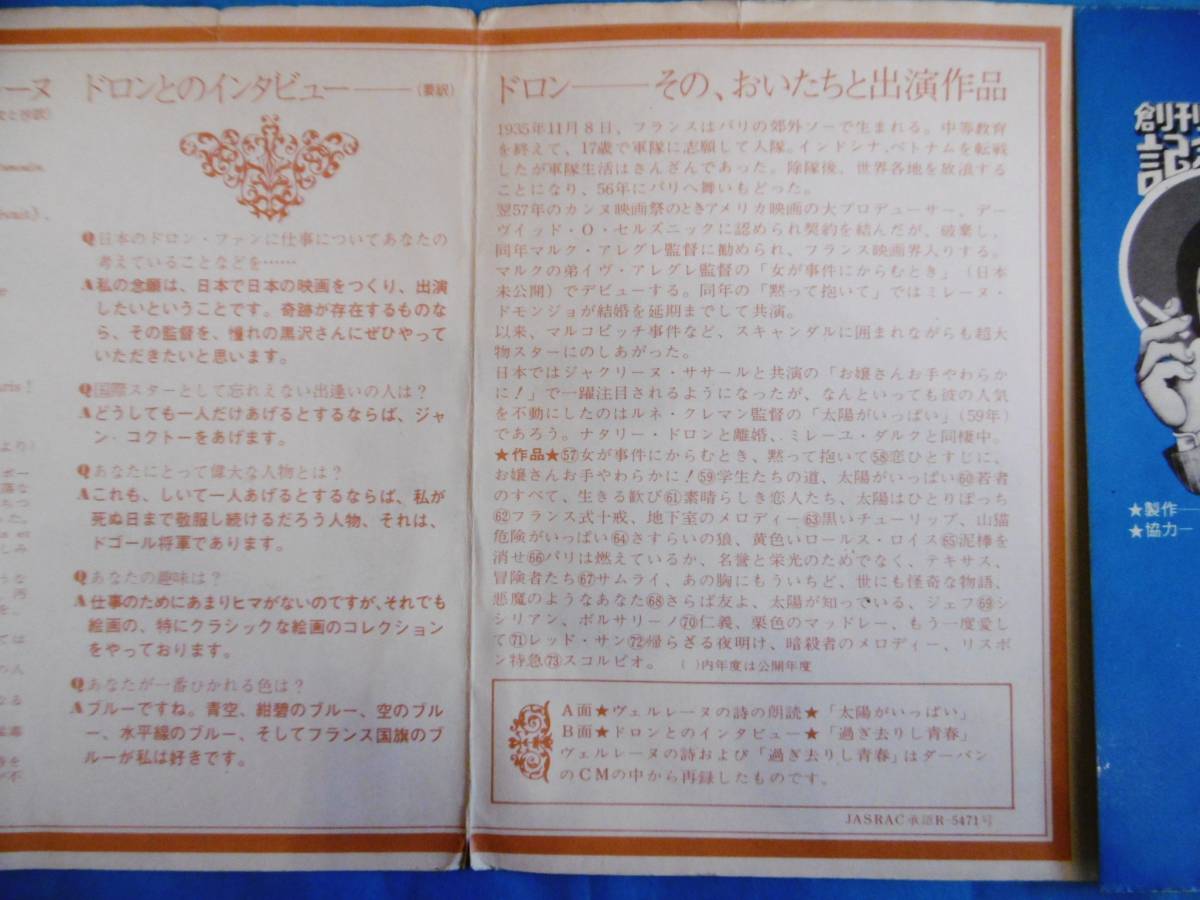 ーヌ
ドロンとのインタビュー――(要訳)
Q日本のドロン・ファンに仕事についてあなたの
考えていることなどを……
A私の念願は、日本で日本の映画をつくり、出演
したいということです。奇跡が存在するものな
ら、その監督を、憧れの黒沢さんにぜひやって
いただきたいと思います。
Q国際スターとして忘れえない出逢いの人は？
Aどうしても一人だけあげるとするならば、ジャ
ン・コクトーをあげます。
Qあなたにとって偉大な人物とは？
Aこれも、しいて一人あげるとするならば、私が
死ぬ日まで敬服し続けるだろう人物、それは、
ドゴール将軍であります。
Qあなたの趣味は？
A仕事のためにあまりヒマがないのですが、それでも
絵画の、特にクラシックな絵画のコレクション
をやっております。
Qあなたが一番ひかれる色は？
Aブルーですね。青空、紺碧のブルー、空のブル
ー、水平線のブルー、そしてフランス国旗のブ
ルーが私は好きです。
ドロン――その、おいたちと出演作品
1935年11月8日、フランスはパリの郊外ソーで生まれる。中等教育
を終えて、17歳で軍隊に志願して入隊。インドシナ、ベトナムを転戦
したが軍隊生活はさんざんであった。除隊後、世界各地を放浪する
ことになり、56年にパリへ舞いもどった。
翌57年のカンヌ映画祭のときアメリカ映画の大プロデューサー、デー
ヴイッド・O・セルズニックに認められ契約を結んだが、破棄し、
同年マルク・アレグレ監督に勧められ、フランス映画界入りする。
マルクの弟イヴ・アレグレ監督の「女が事件にからむとき」(日本
未公開)でデビューする。同年の「黙って抱いて」ではミレーヌ・
ドモンジョが結婚を延期までして共演。
以来、マルコビッチ事件など、スキャンダルに囲まれながらも超大
物スターにのしあがった。
日本ではジャクリーヌ・ササールと共演の「お嬢さんお手やわらか
に！」で一躍注目されるようになったが、なんといっても彼の人気
を不動にしたのはルネ・クレマン監督の「太陽がいっぱい」(59年)
であろう。ナタリー・ドロンと離婚、ミレーユ・ダルクと同棲中。
★作品★57女が事件にからむとき、黙って抱いて58恋ひとすじに、
お嬢さんお手やわらかに！59学生たちの道、太陽がいっぱい60若者
のすべて、生きる歓び61素晴らしき恋人たち、太陽はひとりぼっち
62フランス式十戒、地下室のメロディー63黒いチューリップ、山猫
危険がいっぱい64さすらいの狼、黄色いロールス・ロイス65泥棒を
消せ66パリは燃えているか、名誉と栄光のためでなく、テキサス、
冒険者たち67サムライ、あの胸にもういちど、世にも怪奇な物語、
悪魔のようなあなた68さらば友よ、太陽が知っている、ジェフ69シ
シリアン、ボルサリーノ70仁義、栗色のマッドレー、もう一度愛し
て71レッド・サン72帰らざる夜明け、暗殺者のメロディー、リスボ
ン特急73スコルピオ。 ( )内年度は公開年度
A面★ヴェルレーヌの詩の朗読★「太陽がいっぱい」
B面★ドロンとのインタビュー★「過ぎ去りし青春」
ヴェルレーヌの詩および「過ぎ去りし青春」はダーバン
のCMの中から再録したものです。
JASRAC承認R-5471号
創刊
★製作―
★協力―